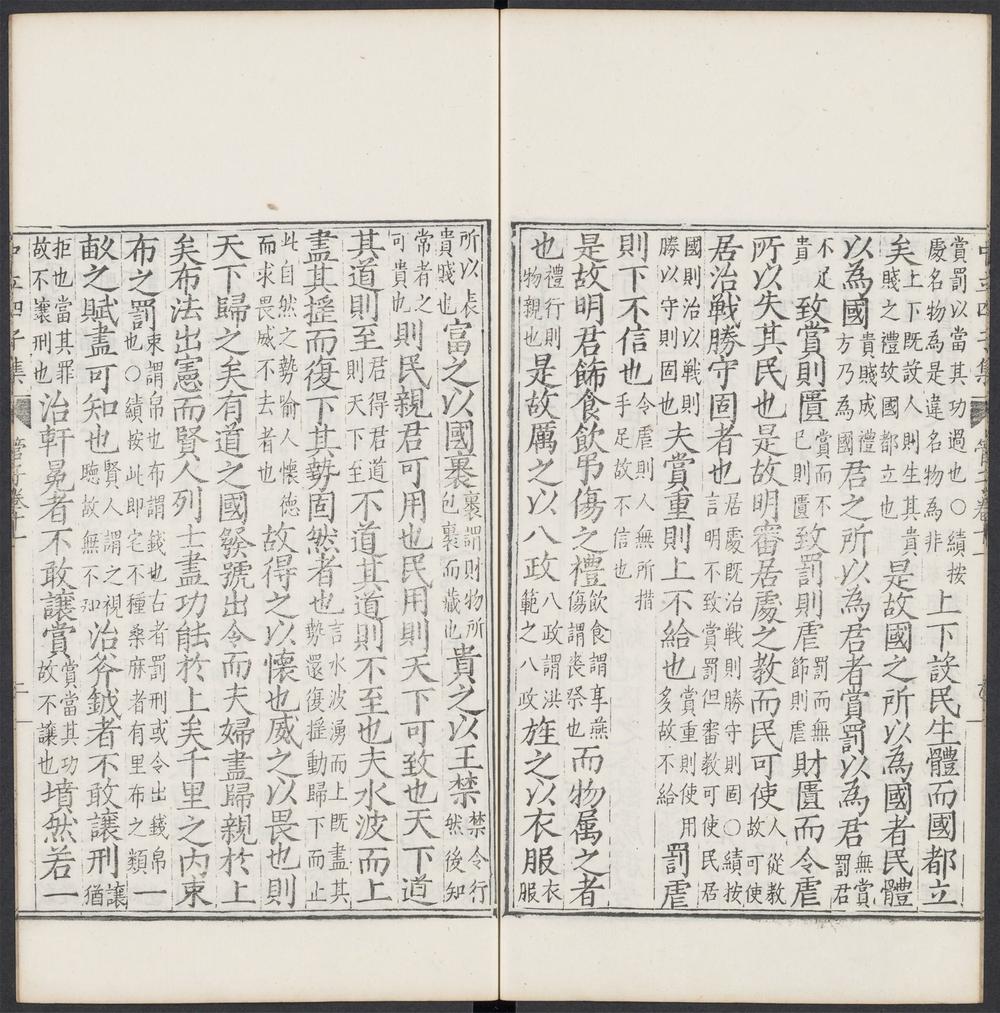 中立四子集 管子卷十一
賞罰以當其功過也○績按慶名物為是違名物為非上下設民生體而國都立
矣上下既設人則生其貴賤之禮故國都立也是故國之所以為國者民體
以為國貴賤成禮方乃為國君之所以為君者賞罰以為君無賞罰君
不足貴致賞則匱賞而不已則匱致罰則虐罰而無節則虐財匱而令虐
所以失其民也是故明審居處之教而民可使人從教故可使
居治戰勝守固者也居處既治戰則勝守則固○績按言明不致賞罰但審教可使民居
國則治以戰則勝以守則固也夫賞重則上不給也賞重則使用多故不給罰虐
則下不信也令虐則人無所措手足故不信也
是故明君飾食飲弔傷之禮飲食謂享燕傷謂喪祭也而物属之者
也禮行則物親也是故厲之以八政八政謂洪範之八政旌之以衣服衣服
所以表貴賤也富之以國裹裹謂財物所包裹而藏也貴之以王禁禁令行然後知
常者之可貴也則民親君可用也民用則天下可致也天下道
其道則至君得君道則天下至不道其道則不至也夫水波而上
盡其揺而復下其勢固然者也言水波湧而上既盡其勢還復揺動歸下而止
此自然之勢喻人懷德而求畏威不去者也故得之以懷也威之以畏也則
天下歸之矣有道之國發號出令而夫婦盡歸親於上
矣布法出憲而賢人列士盡功能於上矣千里之內束
布之罰束謂帛也布謂錢也古者罰刑或令出錢帛也○績按此即宅不種桑麻者有里布之類一
畝之賦盡可知也賢人謂之視聽故無不知治斧鉞者不敢讓刑讓猶
拒也當其罪故不讓刑也治軒冕者不敢讓賞賞當其功故不讓也墳然若一
中立四子集 管子卷十一